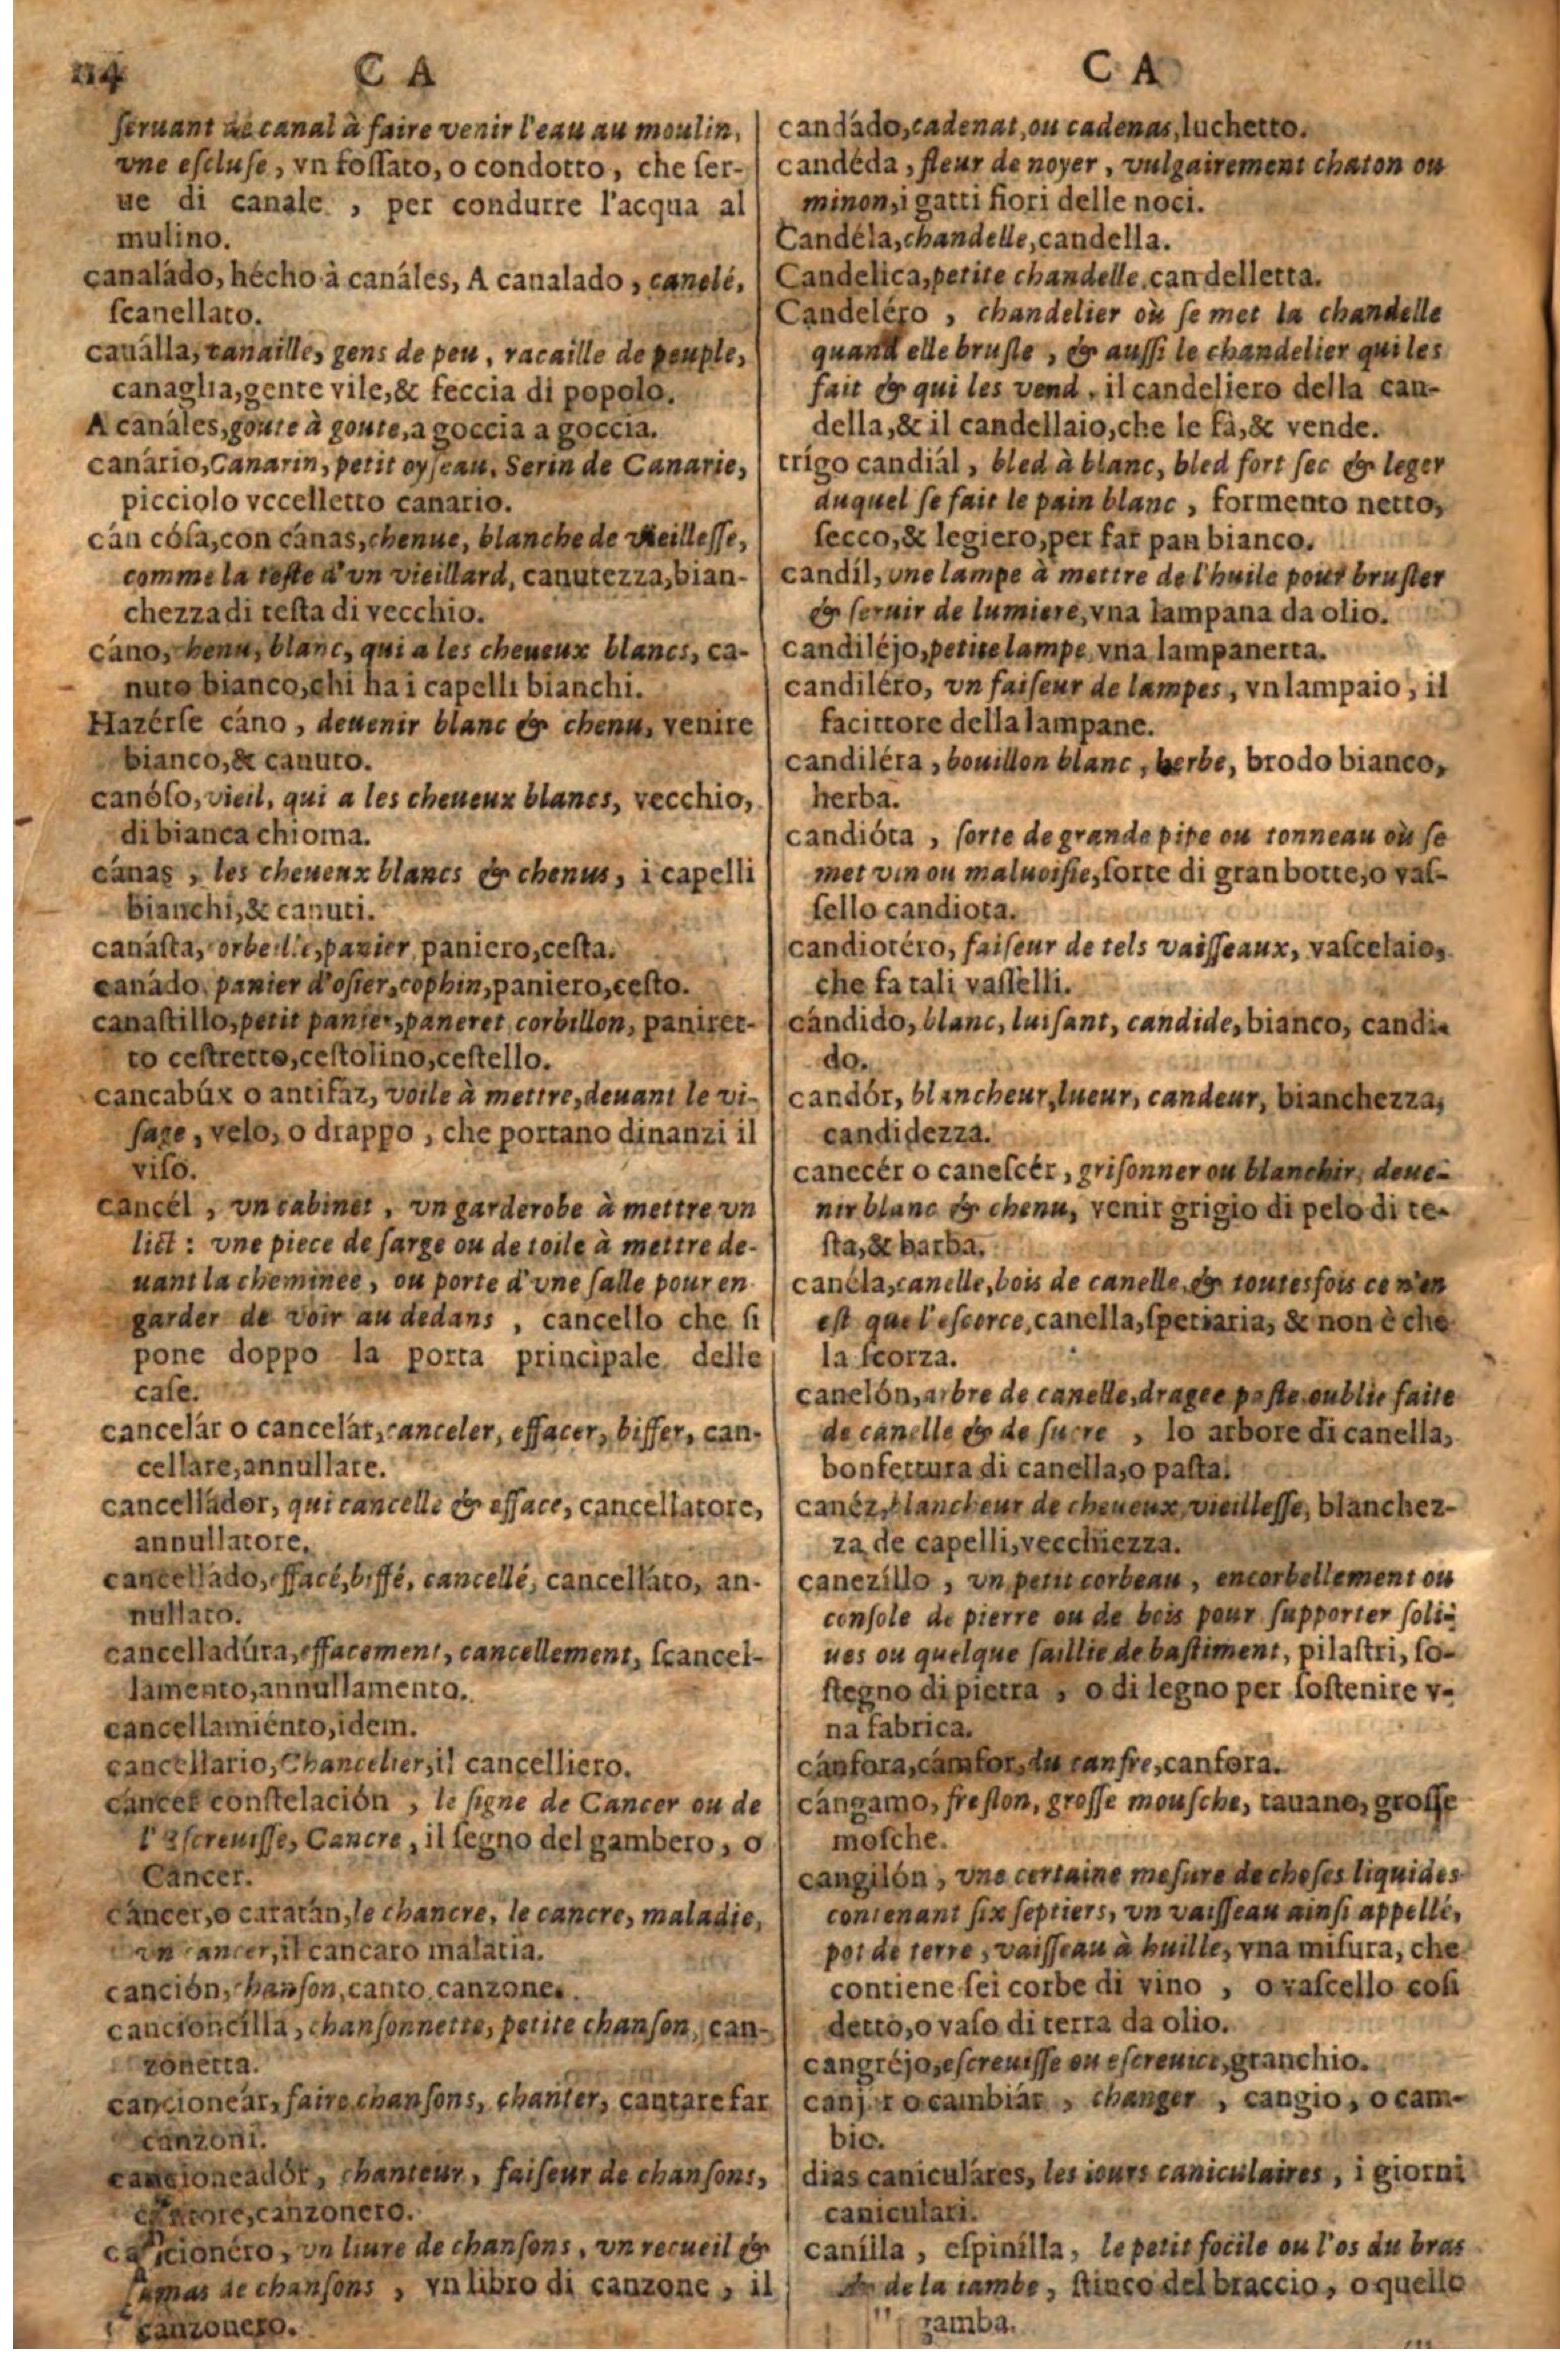 114
C A
C A
ſeruant de canal à faire venir l'eau au moulin,
vne eſcluſe, vn foſſato, o condotto, che ſer-
ue di canale, per condurre l'acqua al
mulino.
canaládo, hécho à canáles, A canalado, canelé,
ſcanellato.
canálla, canaille, gens de peu, racaille de peuple,
canaglia, gente vile, & feccia di popolo.
A canáles, goute à goute, a goccia a goccia.
canário, Canarin, petit oyſeau, Serin de Canarie,
picciolo vccelletto canario.
cán cóſa, con cánas, chenue, blanche de vieilleſſe,
comme la teſte d'vn vieillard, canutezza, bian-
chezza di teſta di vecchio.
cáno, henu, blanc, qui a les cheueux blancs, ca-
nuto bianco, chi ha i capelli bianchi.
Hazérſe cáno, deuenir blanc & chenu, venire
bianco, & canuto.
canóſo, vieil, qui a les cheueux blancs, vecchio,
di bianca chioma.
cánas, les cheueux blancs & chenus, i capelli
bianchi, & canuti.
canáſta, orbeille, panier, paniero, ceſta.
canádo, panier d'oſier, cophin, paniero, ceſto.
canaſtillo, petit panier, paneret, corbillon, paniret-
to ceſtretto, ceſtolino, ceſtello.
cancabúx o antifáz, voile à mettre, deuant le vi-
ſage, velo, o drappo, che portano dinanzi il
viſo.
cancél, vn cabinet, vn garderobe à mettre vn
lict: vne piece de ſarge ou de toile à mettre de-
uant la cheminée, ou porte d'vne ſalle pour en
garder de voir au dedans, cancello che ſi
pone doppo la porta principale delle
caſe.
cancelár o cancelár, canceler, effacer, biffer, can-
cellare, annullare.
cancelládor, qui cancelle & efface, cancellatore,
annullatore.
cancelládo, effacé, biffé, cancellé, cancelláto, an-
nullato.
cancelladúra, effacement, cancellement, ſcancel-
lamento, annullamento.
cancellamiénto, idem.
cancellario, Chancelier, il cancelliero.
cáncer conſtelación, le ſigne de Cancer ou de
l'Eſcreuiſſe, Cancre, il ſegno del gambero, o
Cancer.
cáncer, o caratán, le chancre, le cancre, maladie,
vn cancer, il cancaro malatia.
canción, chanſon, canto, canzone.
cancioncílla, chanſonnette, petite chanſon, can-
zonetta.
cancioneár, faire chanſons, chanter, cantare far
canzoni.
cancioneadór, chanteur, faiſeur de chanſons,
cantore, canzonero.
cancionéro, vn liure de chanſons, vn recueil &
amas de chanſons, vn libro di canzone, il
canzonero.
candádo, cadenat, ou cadenas, luchetto.
candéda, fleur de noyer, vulgairement chaton ou
minon, i gatti fiori delle noci.
Candéla, chandelle, candella.
Candelica, petite chandelle, candelletta.
Candeléro, chandelier où ſe met la chandelle
quand elle bruſle, & auſſi le chandelier qui les
fait & qui les vend, il candeliero della can-
della, & il candellaio, che le fà, & vende.
trígo candiál, bled à blanc, bled fort ſec & leger
duquel ſe fait le pain blanc, formento netto,
ſecco, & legiero, per far pan bianco.
candíl, vne lampe à mettre de l'huile pour bruſler
& ſeruir de lumiere, vna lampana da olio.
candiléjo, petite lampe, vna lampanetta.
candiléro, vn faiſeur de lampes, vn lampaio, il
facittore della lampane.
candiléra, bouillon blanc, herbe, brodo bianco,
herba.
candióta, ſorte de grande pipe ou tonneau où ſe
met vin ou maluoiſie, ſorte di gran botte, o vaſ-
ſello candiota.
candiotéro, faiſeur de tels vaiſſeaux, vaſcelaio,
che fa tali vaſſelli.
cándido, blanc, luiſant, candide, bianco, candi-
do.
candór, blancheur, lueur, candeur, bianchezza,
candidezza.
canecér o caneſcér, griſonner ou blanchir, deue-
nir blanc & chenu, venir grigio di pelo di te-
ſta, & barba.
canéla, canelle, bois de canelle, & toutesfois ce n'en
eſt que l'eſcorce, canella, ſpetiaria, & non è che
la ſcorza.
canelón, arbre de canelle, dragee paſte oublie faite
de canelle & de ſucre, lo arbore di canella,
bonfettura di canella, o paſta.
canéz, blancheur de cheueux, vieilleſſe, blanchez-
za de capelli, vecchiezza.
canezíllo, vn petit corbeau, encorbellement ou
conſole de pierre ou de bois pour ſupporter ſoli-
ues ou quelque ſaillie de baſtiment, pilaſtri, ſo-
ſtegno di pietra, o di legno per ſoſtenire v-
na fabrica.
cánfora, camfor, du canfre, canfora.
cángamo, freſlon, groſſe mouſche, tauano, groſſe
moſche.
cangilón, vne certaine meſure de choſes liquides
contenant ſix ſeptiers, vn vaiſſeau ainſi appellé,
pot de terre, vaiſſeau à huille, vna miſura, che
contiene ſei corbe di vino, o vaſcello coſi
detto, o vaſo di terra da olio.
cangréjo, eſcreuiſſe ou eſcreuice, granchio.
canj r o cambiár, changer, cangio, o cam-
bio.
dias caniculáres, les iours caniculaires, i giorni
caniculari.
caníilla, eſpinílla, le petit focile ou l'os du bras
& de la iambe, ſtinco del braccio, o quello
gamba.